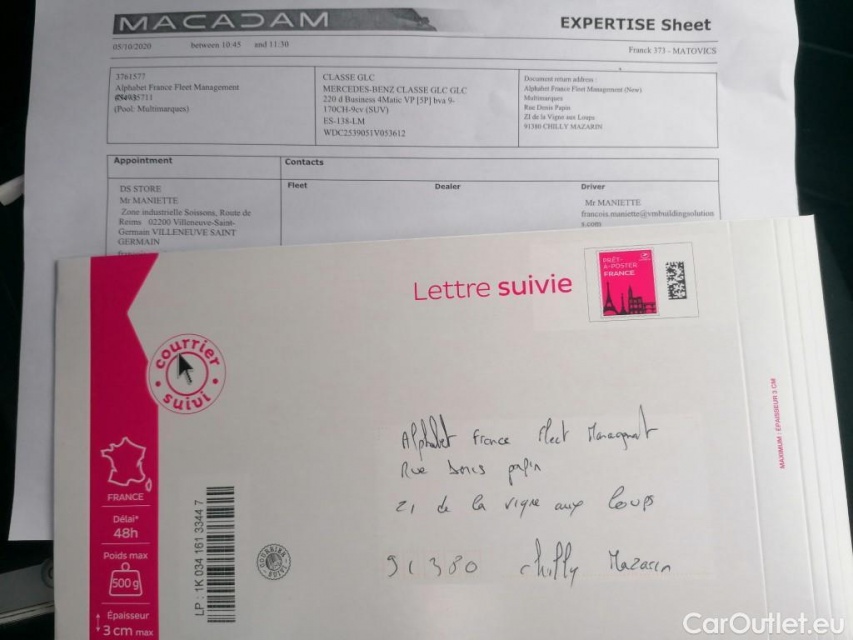 MACADAM
EXPERTISE Sheet
05/10/2020 between 10:45 and 11:30
Franck 373 - MATOVICS
3761577
Alphabet France Fleet Management
(Pool: Multimarques)
CLASSE GLC
MERCEDES-BENZ CLASSE GLC GLC
220 d Business 4Matic VP [5P] bva 9-
170CH-9cv (SUV)
ES-138-LM
WDC2539051V053612
Document return address :
Alphabet France Fleet Management (New)
Multimarques
Rue Denis Papin
ZI de la Vigne aux Loups
91380 CHILLY MAZARIN
Appointment
Contacts
DS STORE
Mr MANIETTE
Zone industrielle Soissons, Route de
Reims 02200 Villeneuve-Saint-
Germain VILLENEUVE SAINT
GERMAIN
Fleet
Dealer
Driver
Mr MANIETTE
francois.maniette@vmbuildingsolution
s.com
Lettre suivie
PRÊT-
À-POSTER
FRANCE
courrier
suivi
FRANCE
Délai*
48h
Poids max
500 g
Épaisseur
3 cm max
LP : 1K 034 161 3344 7
COURRIER
SUIVI
MAXIMUM : ÉPAISSEUR 3 CM
Alphabet France Fleet Managment
Rue Denis papin
ZI de la vigne aux loups
91380 chilly Mazarin
CarOutlet.eu